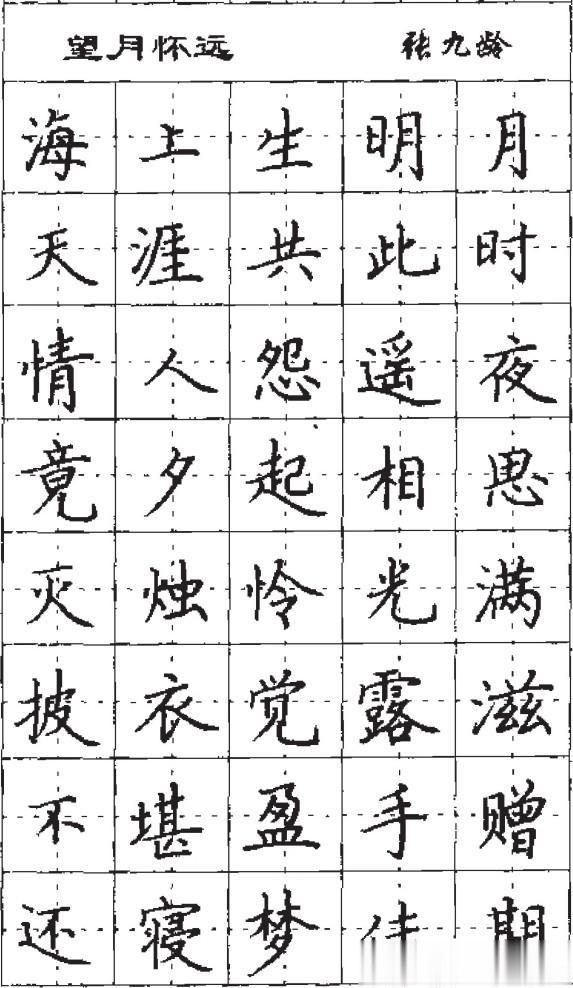 望月怀远 张九龄
海上生明月
天涯共此时
情人怨遥夜
竟夕起相思
灭烛怜光满
披衣觉露滋
不堪盈手赠
还寝梦佳期